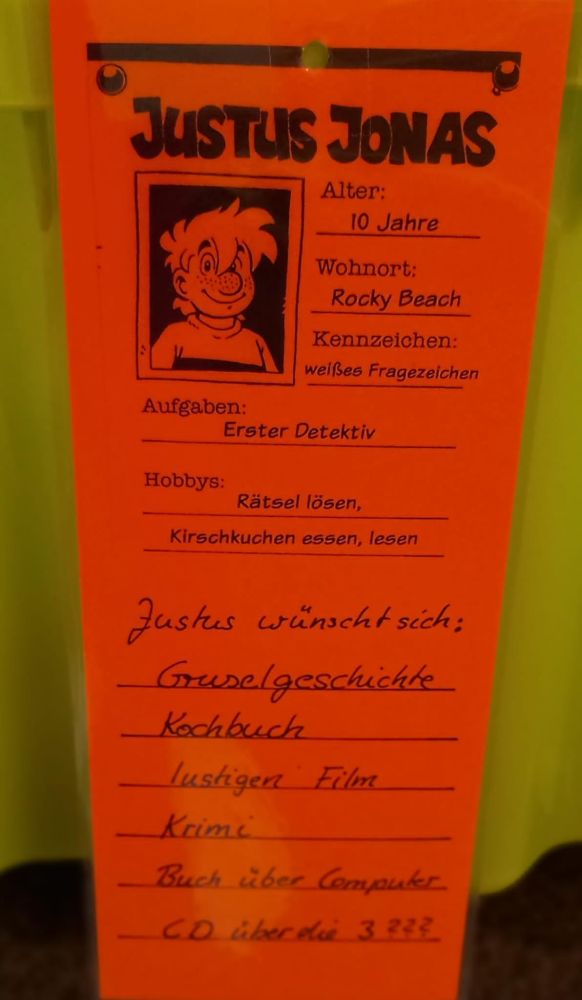 JUSTUS JONAS
Alter:
10 Jahre
Wohnort:
Rocky Beach
Kennzeichen:
weißes Fragezeichen
Aufgaben:
Erster Detektiv
Hobbys:
Rätsel lösen,
Kirschkuchen essen, lesen
Justus wünscht sich:
Gruselgeschichte
Kochbuch
lustigen Film
Krimi
Buch über Computer
CD über die 3 ???